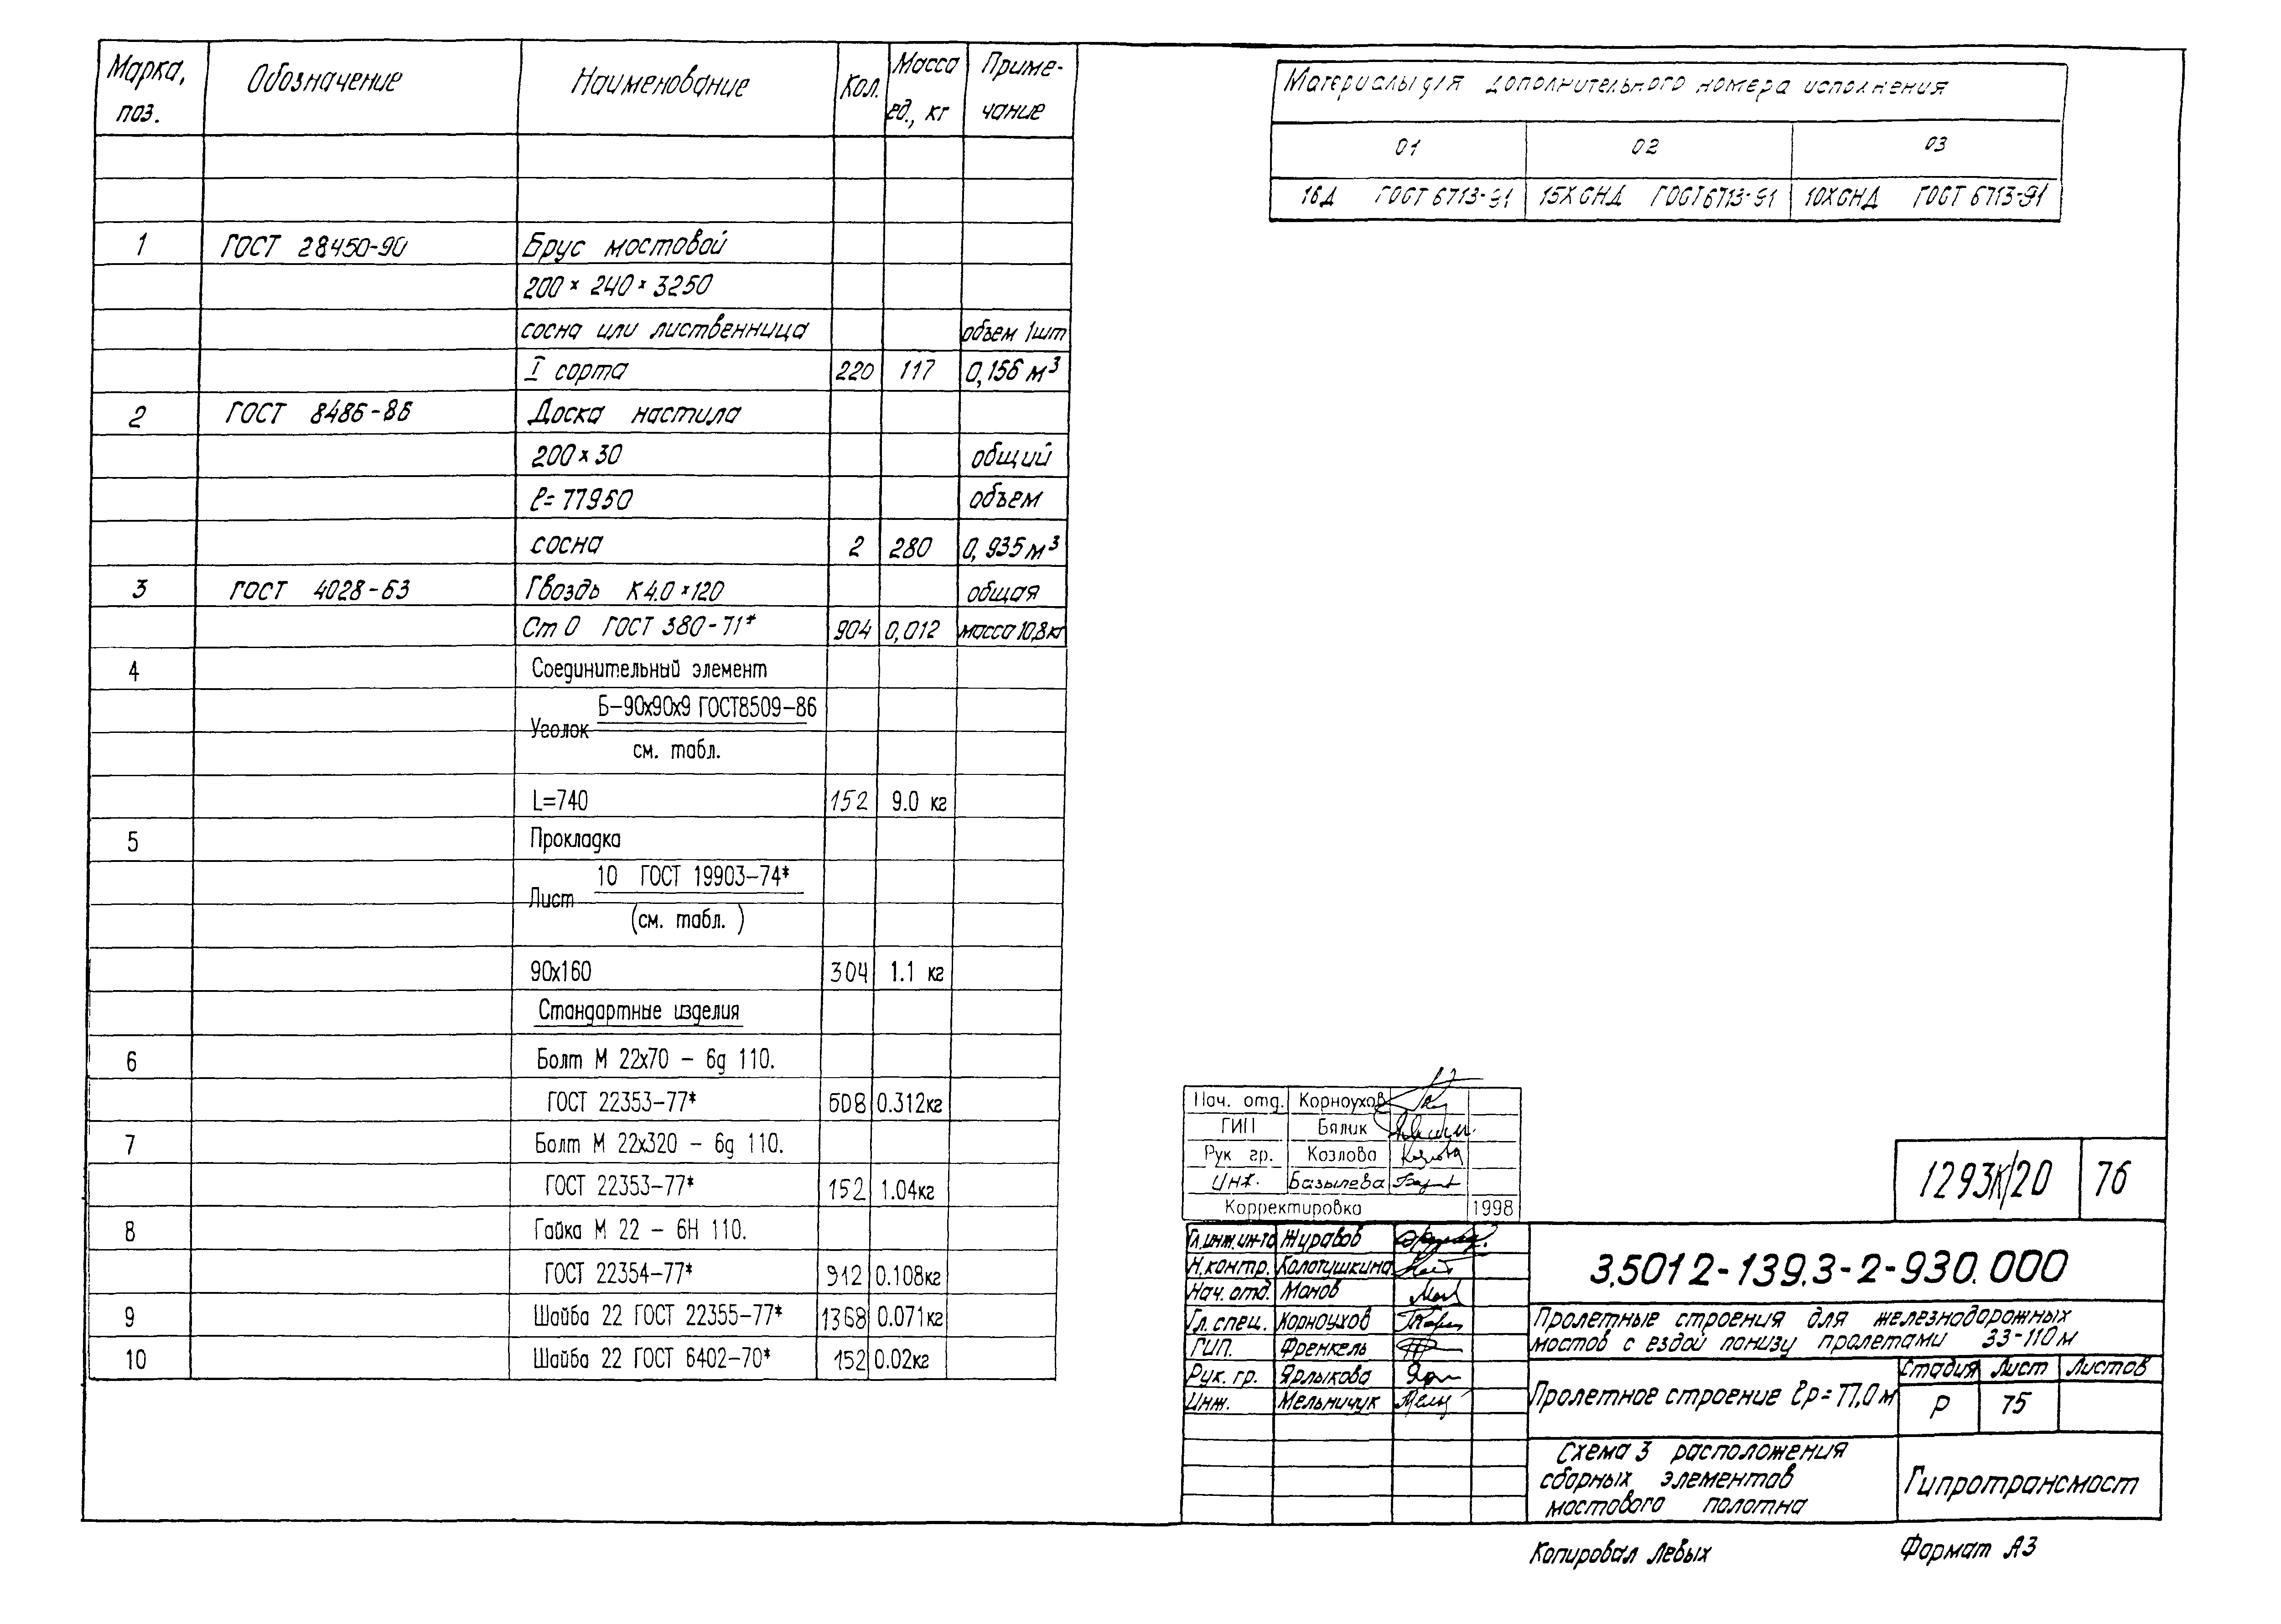 Марка, поз. Обозначение Наименование Кол. Масса ед., кг Приме-чание
1 ГОСТ 28450-90 Брус мостовой
200 × 240 × 3250
сосна или лиственница объем 1шт
I сорта 220 117 0,156 м³
2 ГОСТ 8486-86 Доска настила
200 × 30 общий
ℓ= 77950 объем
сосна 2 280 0,935 м³
3 ГОСТ 4028-63 Гвоздь К4.0 × 120 общая
Ст 0 ГОСТ 380-71* 904 0,012 масса 10,8 кг
4 Соединительный элемент
Б-90х90х9 ГОСТ8509-86
Уголок
см. табл.
L=740 152 9.0 кг
5 Прокладка
10 ГОСТ 19903-74*
Лист
(см. табл. )
90х160 304 1.1 кг
Стандартные изделия
6 Болт М 22х70 - 6g 110.
ГОСТ 22353-77* 608 0.312кг
7 Болт М 22х320 - 6g 110.
ГОСТ 22353-77* 152 1.04кг
8 Гайка М 22 - 6Н 110.
ГОСТ 22354-77* 912 0.108кг
9 Шайба 22 ГОСТ 22355-77* 1368 0.071кг
10 Шайба 22 ГОСТ 6402-70* 152 0.02кг
Материалы для дополнительного номера исполнения
01 02 03
16Д ГОСТ 6713-91 15ХСНД ГОСТ 6713-91 10ХСНД ГОСТ 6713-91
Нач. отд. Корноухов
ГИП Бялик
Рук гр. Козлова Козлова
Инж. Базылева
Корректировка 1998
1293К/20 76
Гл.инж.ин-та Журавов
Н.контр. Колотушкина
Нач. отд. Монов
Гл. спец. Корноухов
ГИП. Френкель
Рук. гр. Ярлыкова
Инж. Мельничук
3.5012-139.3-2-930.000
Пролетные строения для железнодорожных
мостов с ездой понизу пролетами 33-110 м
Пролетное строение ℓр = 77,0 м
Стадия Лист Листов
Р 75
Схема 3 расположения
сборных элементов
мостового полотна
Гипротрансмост
Копировал Левых Формат А3